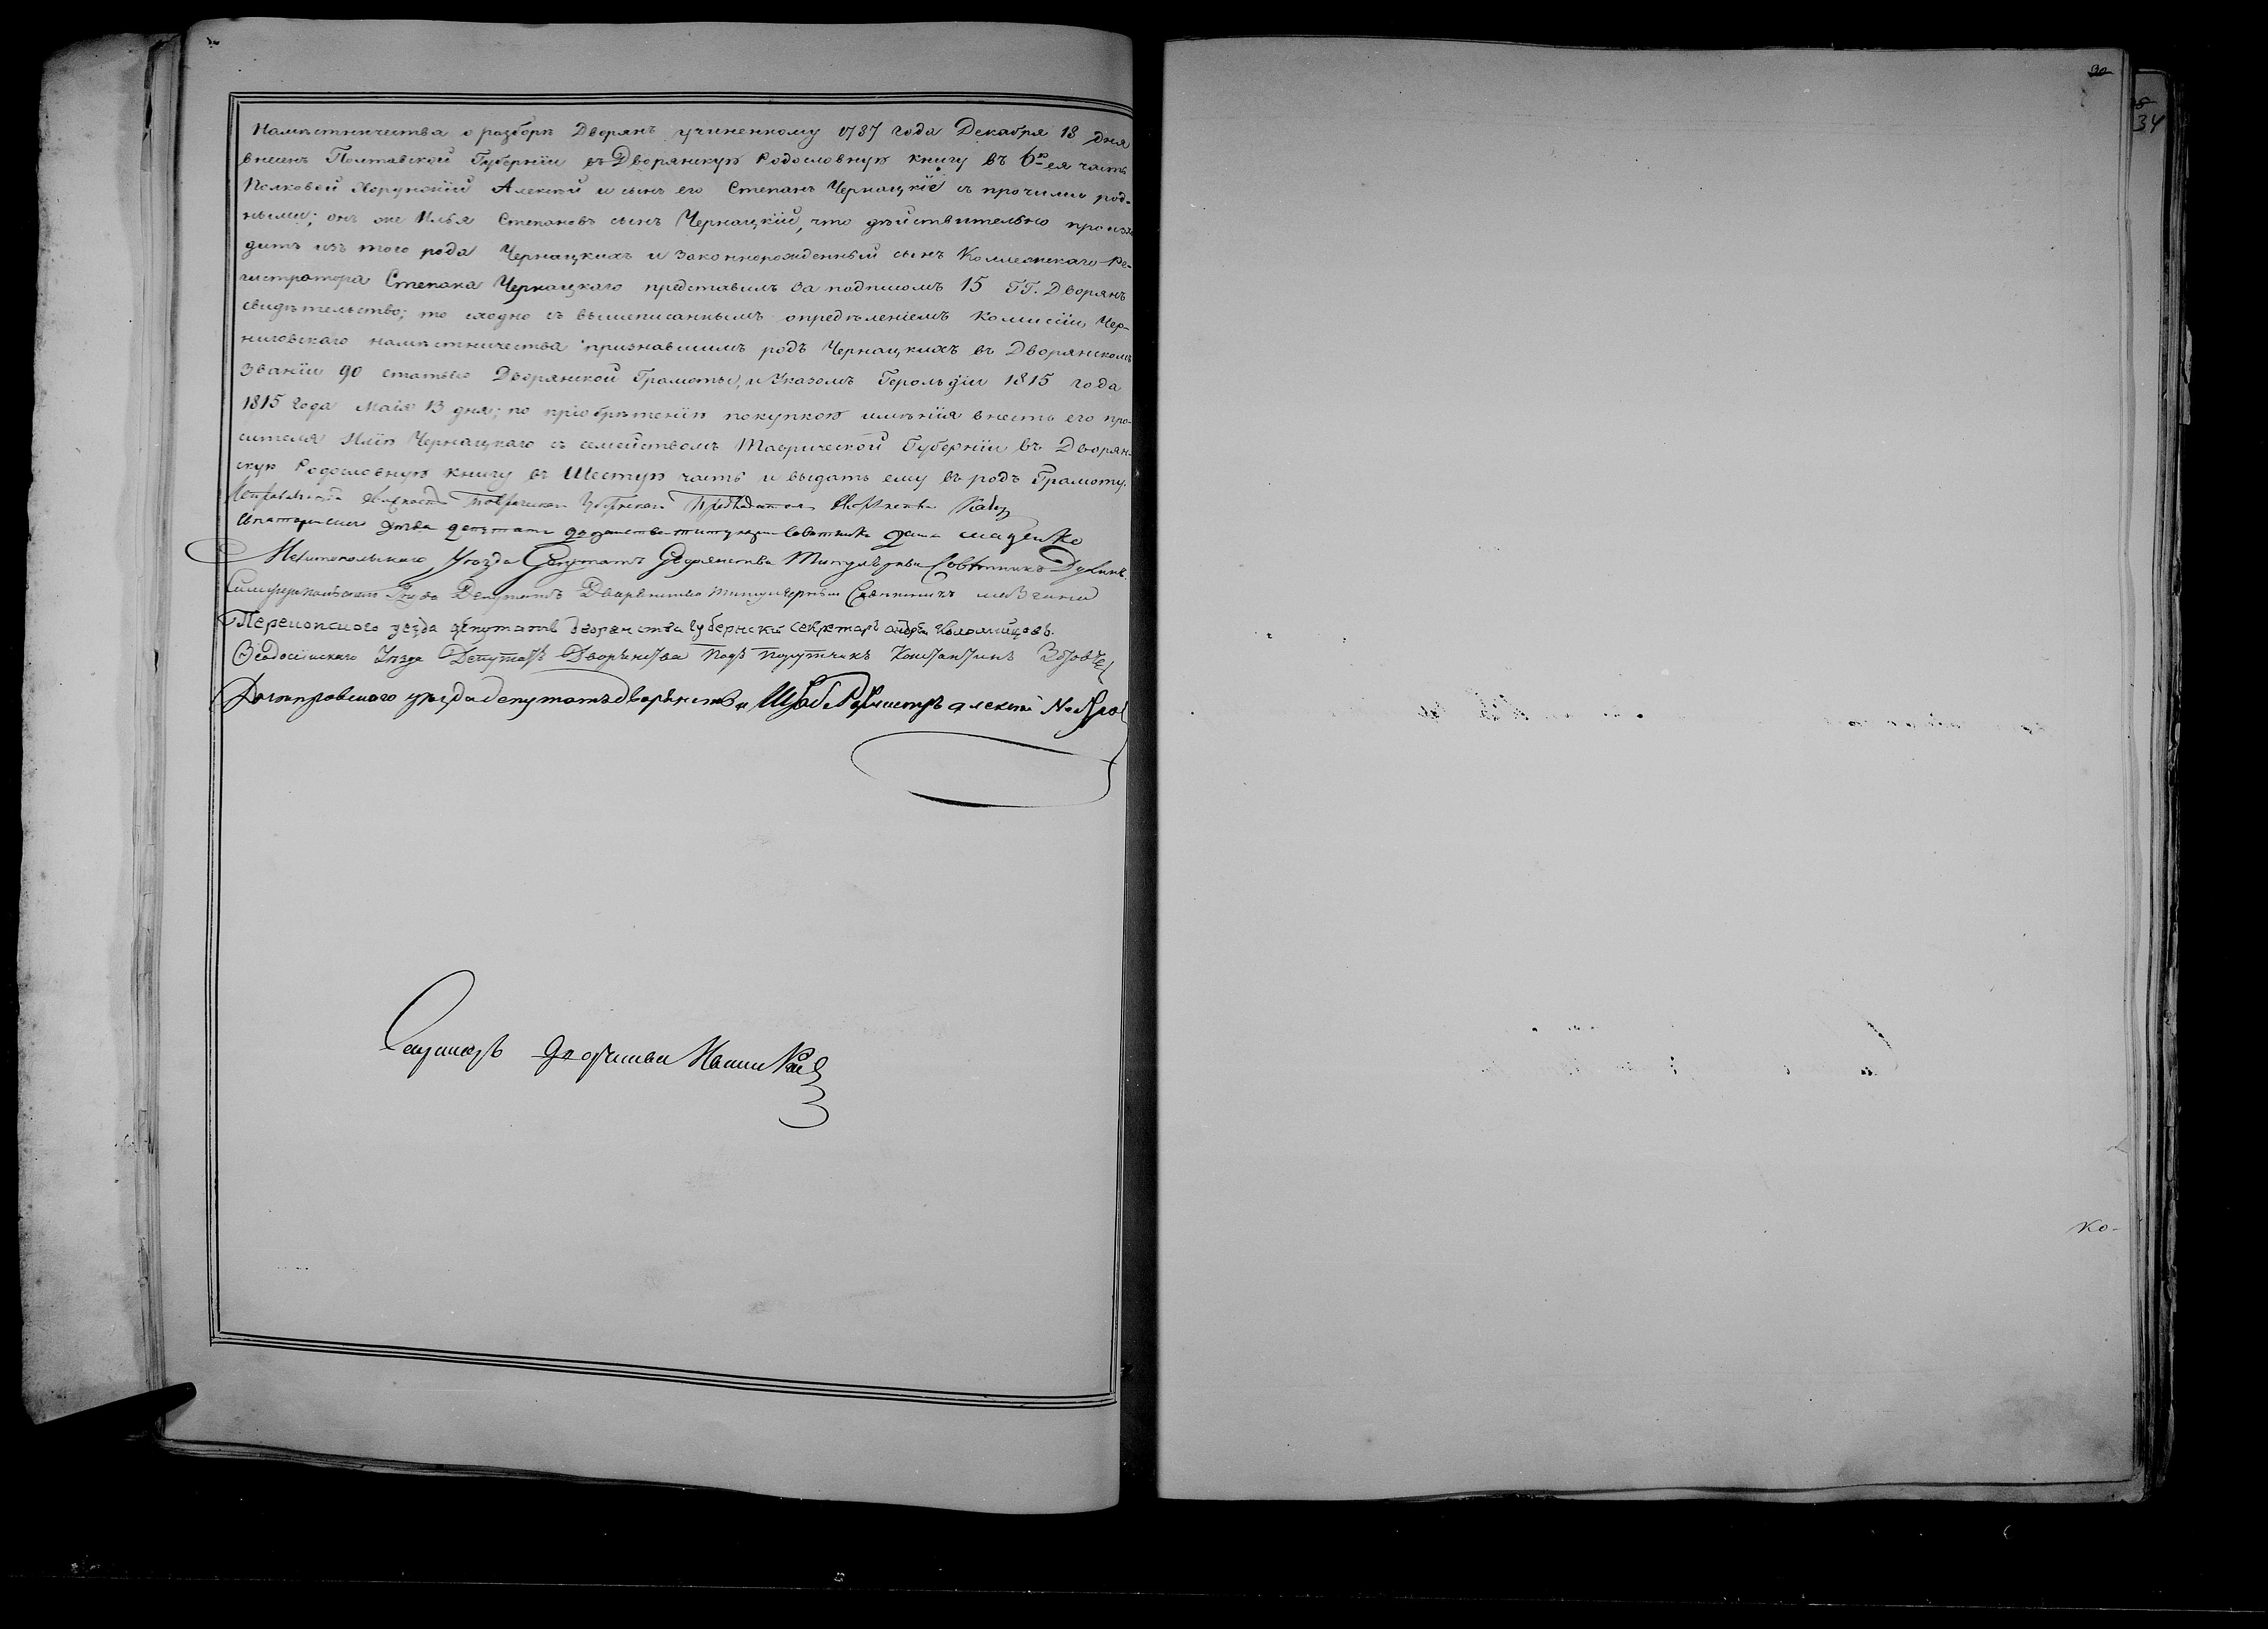 Намѣстничества о разборѣ Дворянъ учиненному 1787 года Декабря 13 дня
внесенъ Полтавской Губерніи въ Дворянскую Родословную книгу въ 6ю ея часть
Полковой Хорунжій Алексѣй и сынъ его Степанъ Чернацкіе съ прочими род-
ными; онъ же Илья Степановъ сынъ Чернацкій, что дѣйствительно происхо
дитъ изъ того рода Чернацкихъ и законнорожденный сынъ Коллежскаго Ре-
гистратора Степана Чернацкаго представилъ за подписомъ 15 ГГ. Дворянъ
свидѣтельство; то сходно съ вышеписаннымъ опредѣленіемъ Комисіи Чер-
ниговскаго намѣстничества признавшимъ родъ Чернацкихъ въ Дворянскомъ
званіи 90 статьею Дворянской Грамоты, и Указомъ Герольдіи 1815 года
1815 года Маія 13 дня; по пріобрѣтеніи покупкою имѣнія внесть его про-
сителя Илію Чернацкаго съ семействомъ Таврической Губерніи въ Дворян-
скую Родословную книгу въ Шестую часть и выдать ему въ родъ Грамоту.
должность Таврическаго Губернскаго Предводителя
уѣзда депутатъ дворянства титулярный Советникъ
Мелитопольскаго Уѣзда Депутатъ Дворянства Титулярный Совѣтникъ
Симферопольскаго Уезда Депутатъ Дворянства титулярный Советникъ
Перекопскаго уезда депутатъ дворянства губернский секретарь андрей Коломийцовъ.
Θеодосійскаго Уѣзда Депутатъ Дворянства Подъ Порутчикъ Константинъ
Днепровскаго уѣзда депутатъ дворянства Штабъ Ротмистръ алексей
Секретарь дворянства
30
34
ко-